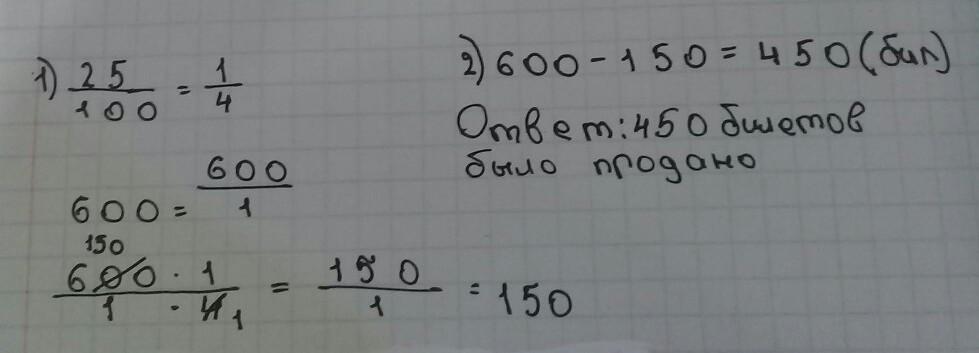 1) 25/100 = 1/4
600 = 600/1
150
600 · 1 / 1 · 4 1 = 150/1 = 150
2) 600 - 150 = 450 (бил)
Ответ: 450 билетов
было продано